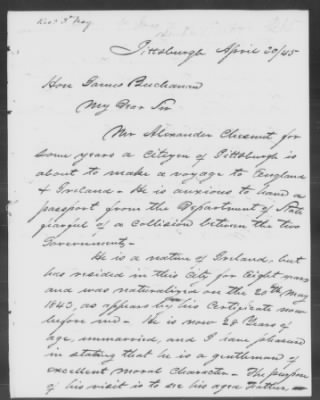 Recd 3d May
Pittsburgh April 30/45
Hon James Buchanan
My Dear Sir
Mr Alexander Chesnut for
some years a citizen of Pittsburgh is
about to make a voyage to England
& Ireland - He is anxious to have a
passport from the Department of State
fearful of a collision between the two
Governments -
He is a native of Ireland, but
has resided in this City for Eight years
and was naturalized on the 20th May
1843, as appears by his Certificate now
before me - He is now 28 Years of
age, unmarried, and I have pleasure
in stating that he is a gentleman of
excellent moral character - The purpose
of his visit is to see his aged Father -